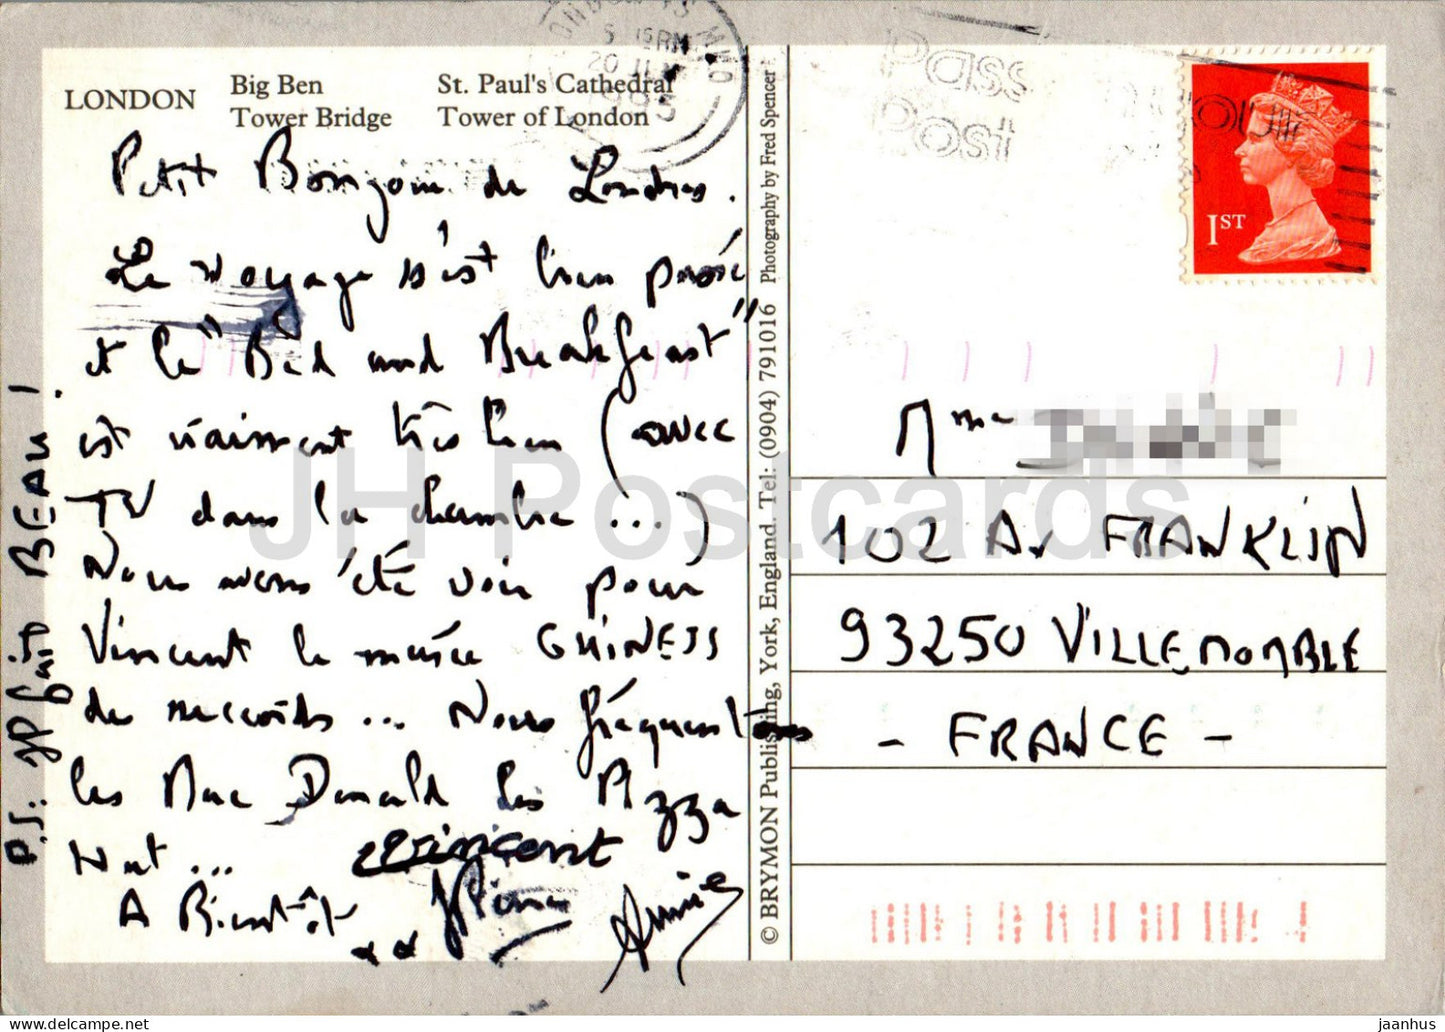 LONDON
Big Ben
Tower Bridge
St. Paul's Cathedral
Tower of London
Petit Bonjour de Londres.
Le voyage s'est bien passé
et le "Bed and Breakfast"
est vraiment très bien (avec
TV dans la chambre ...)
Nous avons été voir pour
Vincent le musée GUINESS
des records ... Nous fréquentons
les Mac Donald les Pizza
Hut ...
A Bientôt
Vincent
JPierre
Annie
P.S: JP fait BEAU !
© BRYMON Publishing, York, England. Tel: (0904) 791016 Photography by Fred Spencer
Post
1ST
Mme
102 Av FRANKLIN
93250 VILLEMOMBLE
- FRANCE -
JH Postcards
jaanhus | delcampe.net